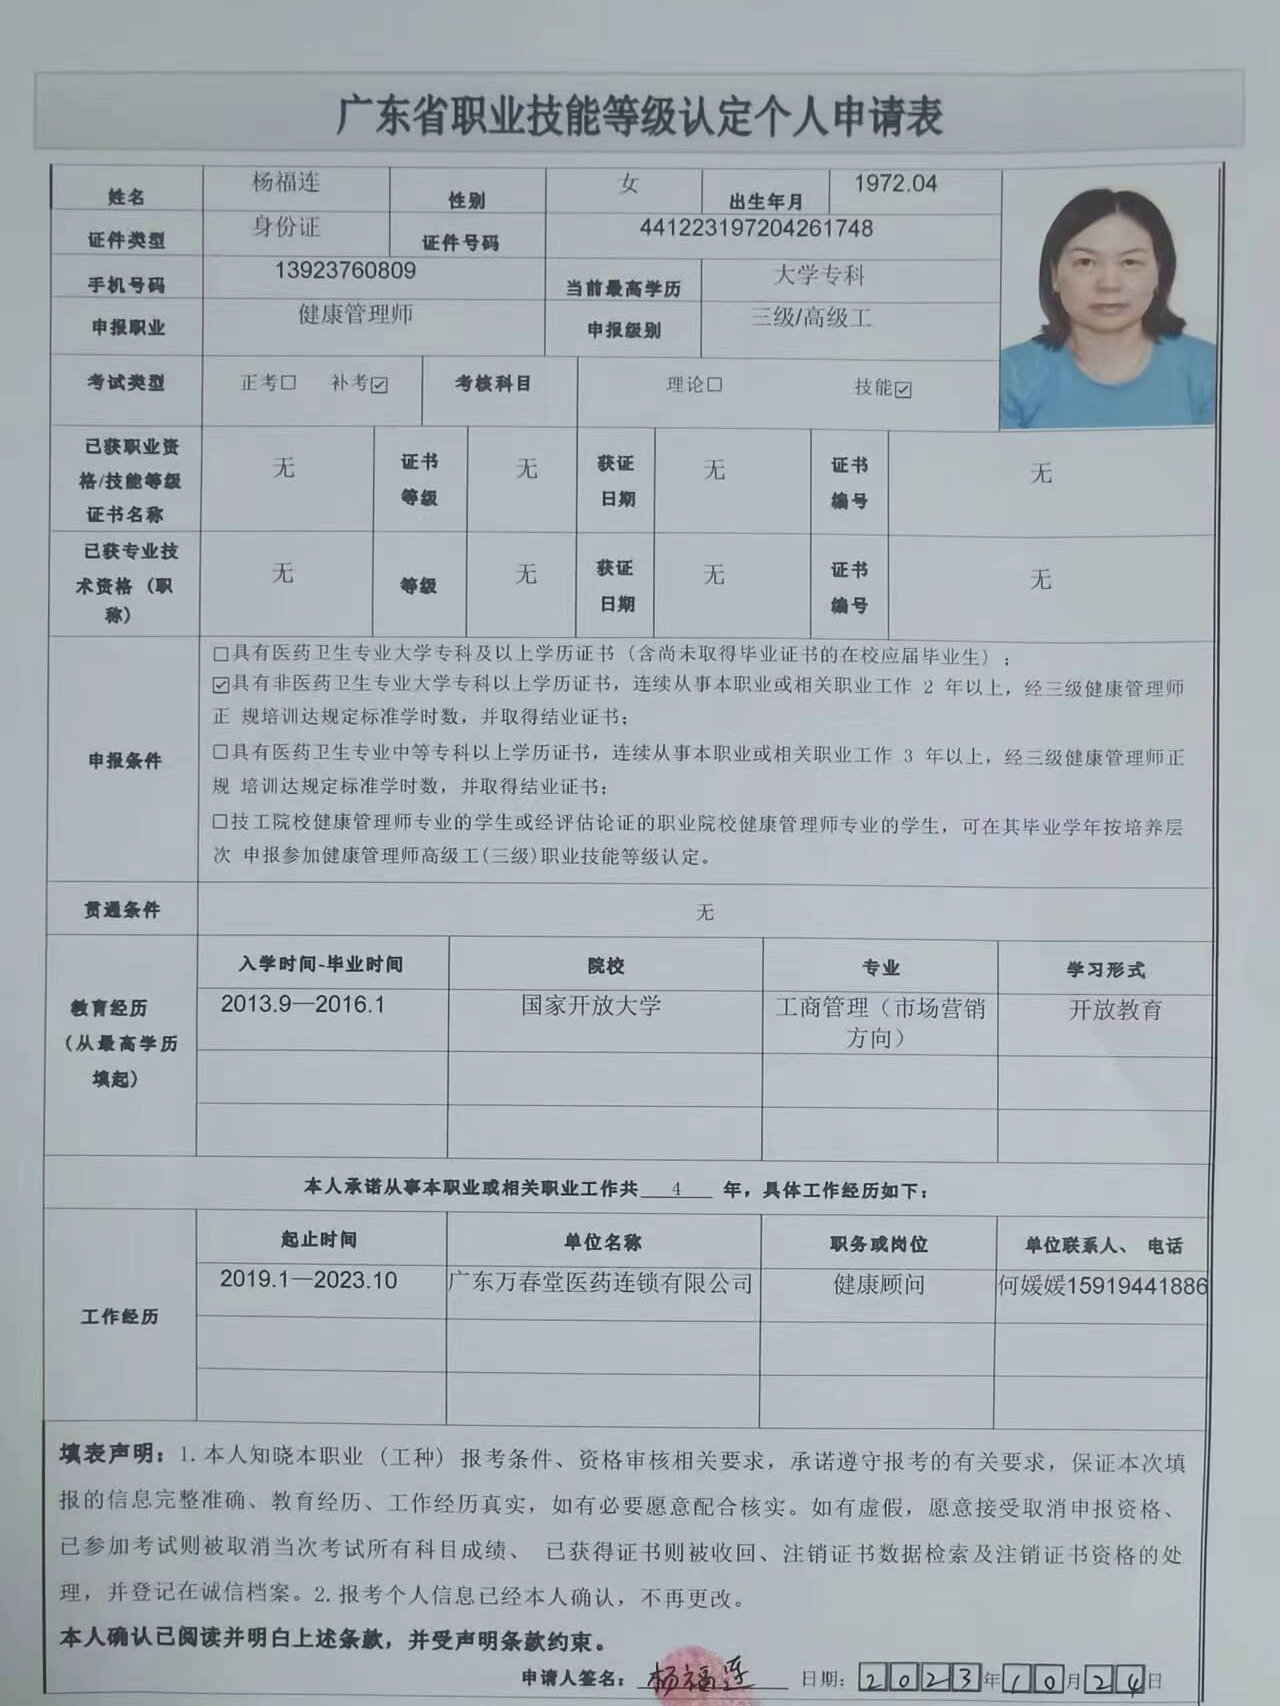 广东省职业技能等级认定个人申请表
姓名 杨福连 性别 女 出生年月 1972.04
证件类型 身份证 证件号码 441223197204261748
手机号码 13923760809 当前最高学历 大学专科
申报职业 健康管理师 申报级别 三级/高级工
考试类型 正考☐ 补考☑ 考核科目 理论☐ 技能☑
已获职业资
格/技能等级
证书名称
无
证书
等级
无
获证
日期
无
证书
编号
无
已获专业技
术资格（职
称）
无
等级
无
获证
日期
无
证书
编号
无
申报条件
☐具有医药卫生专业大学专科及以上学历证书（含尚未取得毕业证书的在校应届毕业生）；
☑具有非医药卫生专业大学专科以上学历证书，连续从事本职业或相关职业工作 2 年以上，经三级健康管理师
正 规培训达规定标准学时数，并取得结业证书；
☐具有医药卫生专业中等专科以上学历证书，连续从事本职业或相关职业工作 3 年以上，经三级健康管理师正
规 培训达规定标准学时数，并取得结业证书；
☐技工院校健康管理师专业的学生或经评估论证的职业院校健康管理师专业的学生，可在其毕业学年按培养层
次 申报参加健康管理师高级工(三级)职业技能等级认定。
贯通条件 无
教育经历
（从最高学历
填起）
入学时间-毕业时间 院校 专业 学习形式
2013.9—2016.1 国家开放大学 工商管理（市场营销 开放教育
方向）
本人承诺从事本职业或相关职业工作共 4 年，具体工作经历如下：
工作经历
起止时间 单位名称 职务或岗位 单位联系人、 电话
2019.1—2023.10 广东万春堂医药连锁有限公司 健康顾问 何媛媛15919441886
填表声明：1.本人知晓本职业（工种）报考条件、资格审核相关要求，承诺遵守报考的有关要求，保证本次填
报的信息完整准确、教育经历、工作经历真实，如有必要愿意配合核实。如有虚假，愿意接受取消申报资格、
已参加考试则被取消当次考试所有科目成绩、 已获得证书则被收回、注销证书数据检索及注销证书资格的处
理，并登记在诚信档案。2.报考个人信息已经本人确认，不再更改。
本人确认已阅读并明白上述条款，并受声明条款约束。
申请人签名：杨福连 日期：2023年10月24日